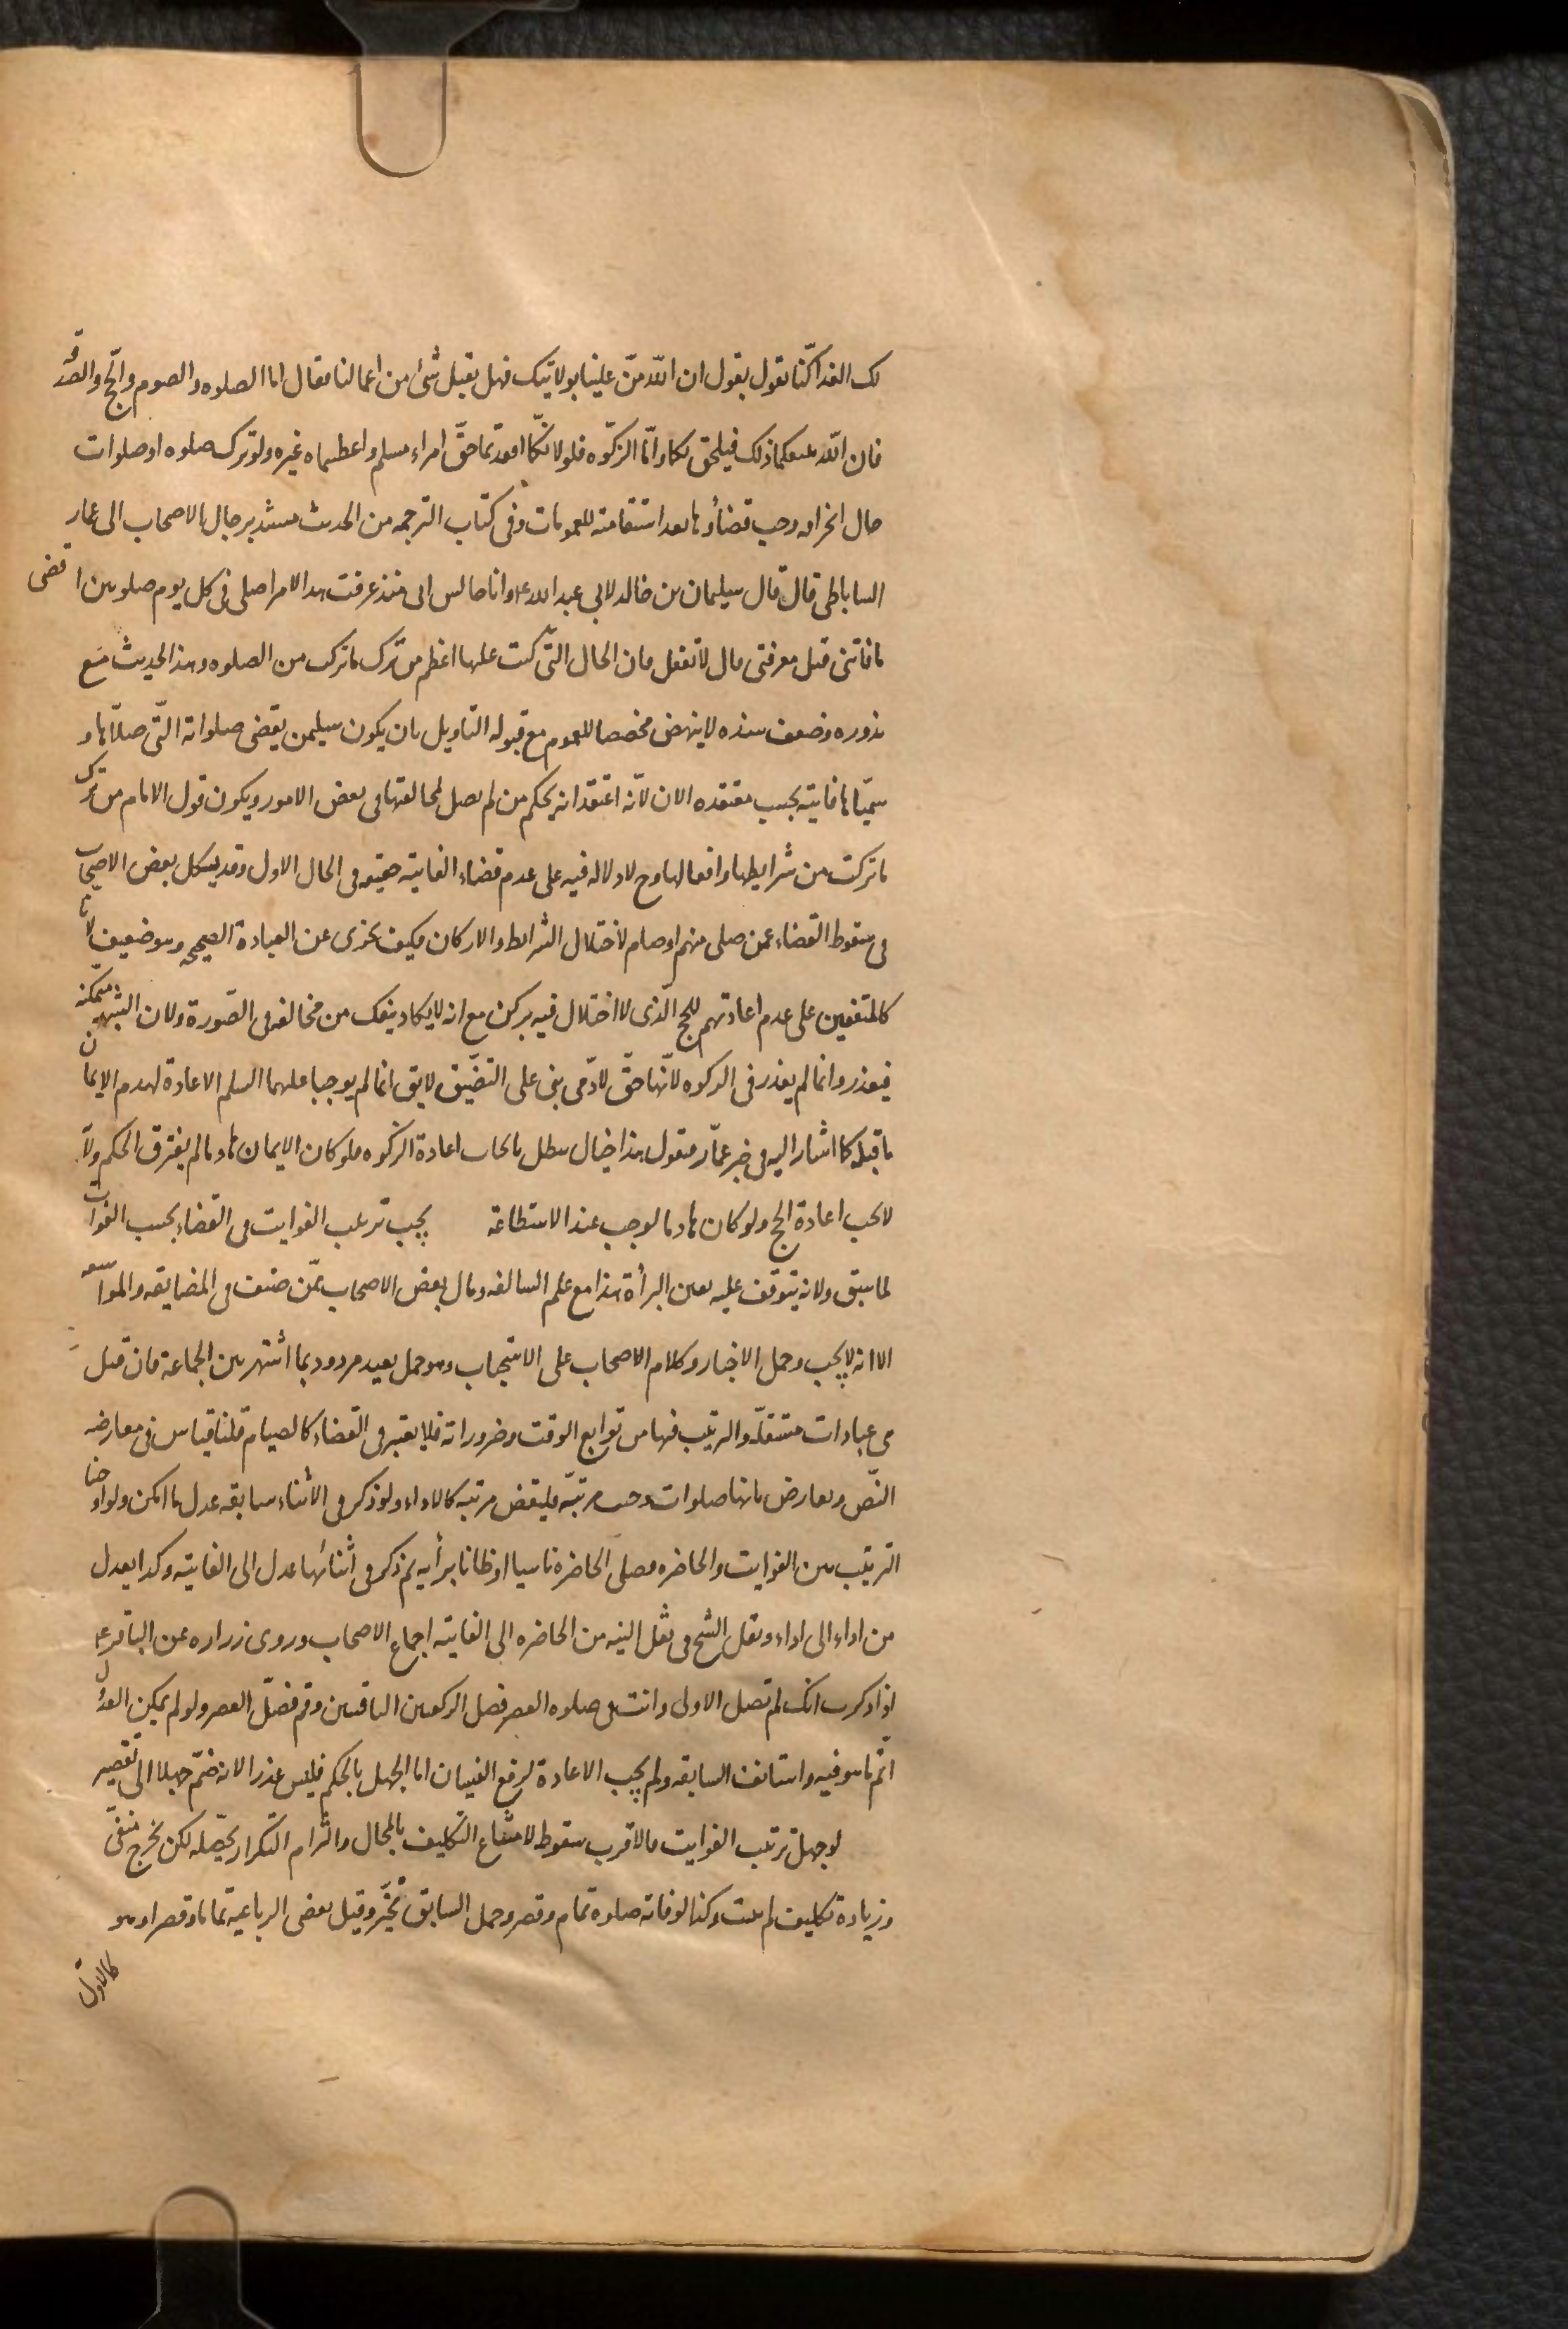 لك الفدا كنّا نقول بقول ان اللّه منّ علينا بولايتك فهل يقبل شئ من اعمالنا فقال اما الصلوه والصوم والحّج والصدقه
فان اللّه يتبعكما ذلك فيلحق بكما وامّا الزكوه فلا لانكما ابعدتما حقّ امراء مسلم واعطيتماه غيره ولو ترك صلوه او صلوات
حال انحرافه وجب قضاؤها بعد استقامته للعمومات وفى كتاب الرحمه من الحديث مسند برجال الاصحاب الى عمار
الساباطى قال قال سليمان بن خالد لابي عبد الله ع وانا جالس انى منذ عرفت هذا الامر اصلى فى كل يوم صلوتين اقضى
ما فاتنى قبل معرفتى قال لا تفعل فان الحال التّى كنت عليها اعظم من ترك ما تركت من الصلوه وهذ الحديث مع
ندوره وضعف سنده لا ينهض مخصصا للعموم مع قبوله التاويل بان يكون سليمن يقضى صلواته التّى صلّاها و
سمّياها فايته بحسب معتقده الان لانّه اعتقد انه بحكم من لم يصل لمخالفتها فى بعض الامور ويكون قول الامام من ترك
ما تركت من شرايطها وافعالها وح لا دلاله فيه على عدم قضاء الفايته حقيقه فى الحال الاول وقد يشكل بعض الاصحاب
فى سقوط القضاء عمن صلى منهم او صام لاختلال الشرائط والاركان فكيف تجزى عن العبادة الصحيحه وهو ضعيف لانا
كالمتفقين على عدم اعادتهم للحج الّذى لا اختلال فيه بركن مع انه لا يكاد ينفك من مخالفه فى الصّورة ولان الشبهه متمكنه
فيعذر وانما لم يعذر فى الزكوه لانّها حقّ لادّمى بنى على التضّيق لا يق انما لم يوجبا عليهما السلم الاعادة لهدم الايمان
ما قبله كما اشار اليه فى خبر عمّار فنقول هذا خيال يبطل بايجاب اعادة الزكوه فلو كان الايمان هادما لم يفترق الحكم ولانّه
لا يجب اعادة الحج ولو كان هادما لوجب عند الاستطاعة يجب ترتيب الفوايت فى القضاء بحسب الفوات
لما سبق ولانه يتوقف عليه يقين البرأة هذا مع علم السالفه ومال بعض الاصحاب ممّن صنف فى المضايقه والمواسعه
الا انه لا يجب وحمل الاخبار وكلام الاصحاب على الاستحباب وهو حمل بعيد مردود بما اشتهر بين الجماعة فان قيل
هى عبادات مستقلّه والترتيب فيها من توابع الوقت وضروراته فلا يعتبر فى القضاء كالصيام قلنا قياس فى معارضه
النّص ومعارض بانها صلوات وجبت مرتبّه فليقض مرتبه كالاداء ولو ذكر فى الاثناء سابقه عدل ما امكن ولو اوجبنا
الترتيب بين الفوايت والحاضره فصلى الحاضرة ناسيا او ظانا برأيه ثم ذكر فى اثنائها عدل الى الفايته وكذا يعدل
من اداء الى اداء ونقل الشيخ فى نقل النيه من الحاضره الى الفايته اجماع الاصحاب وروى زراره عن الباقر ع
اذا ذكرت انك لم تصل الاولى وانت فى صلوه العصر فصل الركعتين الباقتين وقم فصلّ العصر ولو لم يمكن العدول
اتم ما هو فيه واستانف السابقه ولم يجب الاعادة لرفع النسيان اما الجهل بالحكم فليس عذرا لانه ضمّ جهلا الى تقصير
لو جهل ترتيب الفوايت فالاقرب سقوط لامتناع التكليف بالمحال والتزام التكرار يحصّله لكن بحرج منفى
وزيادة تكليف لم يثبت وكذا لو فاته صلوة تمام وقصر وجهل السابق تخيّر وقيل بعض الرباعية تماما وقصرا وهو
كالاول